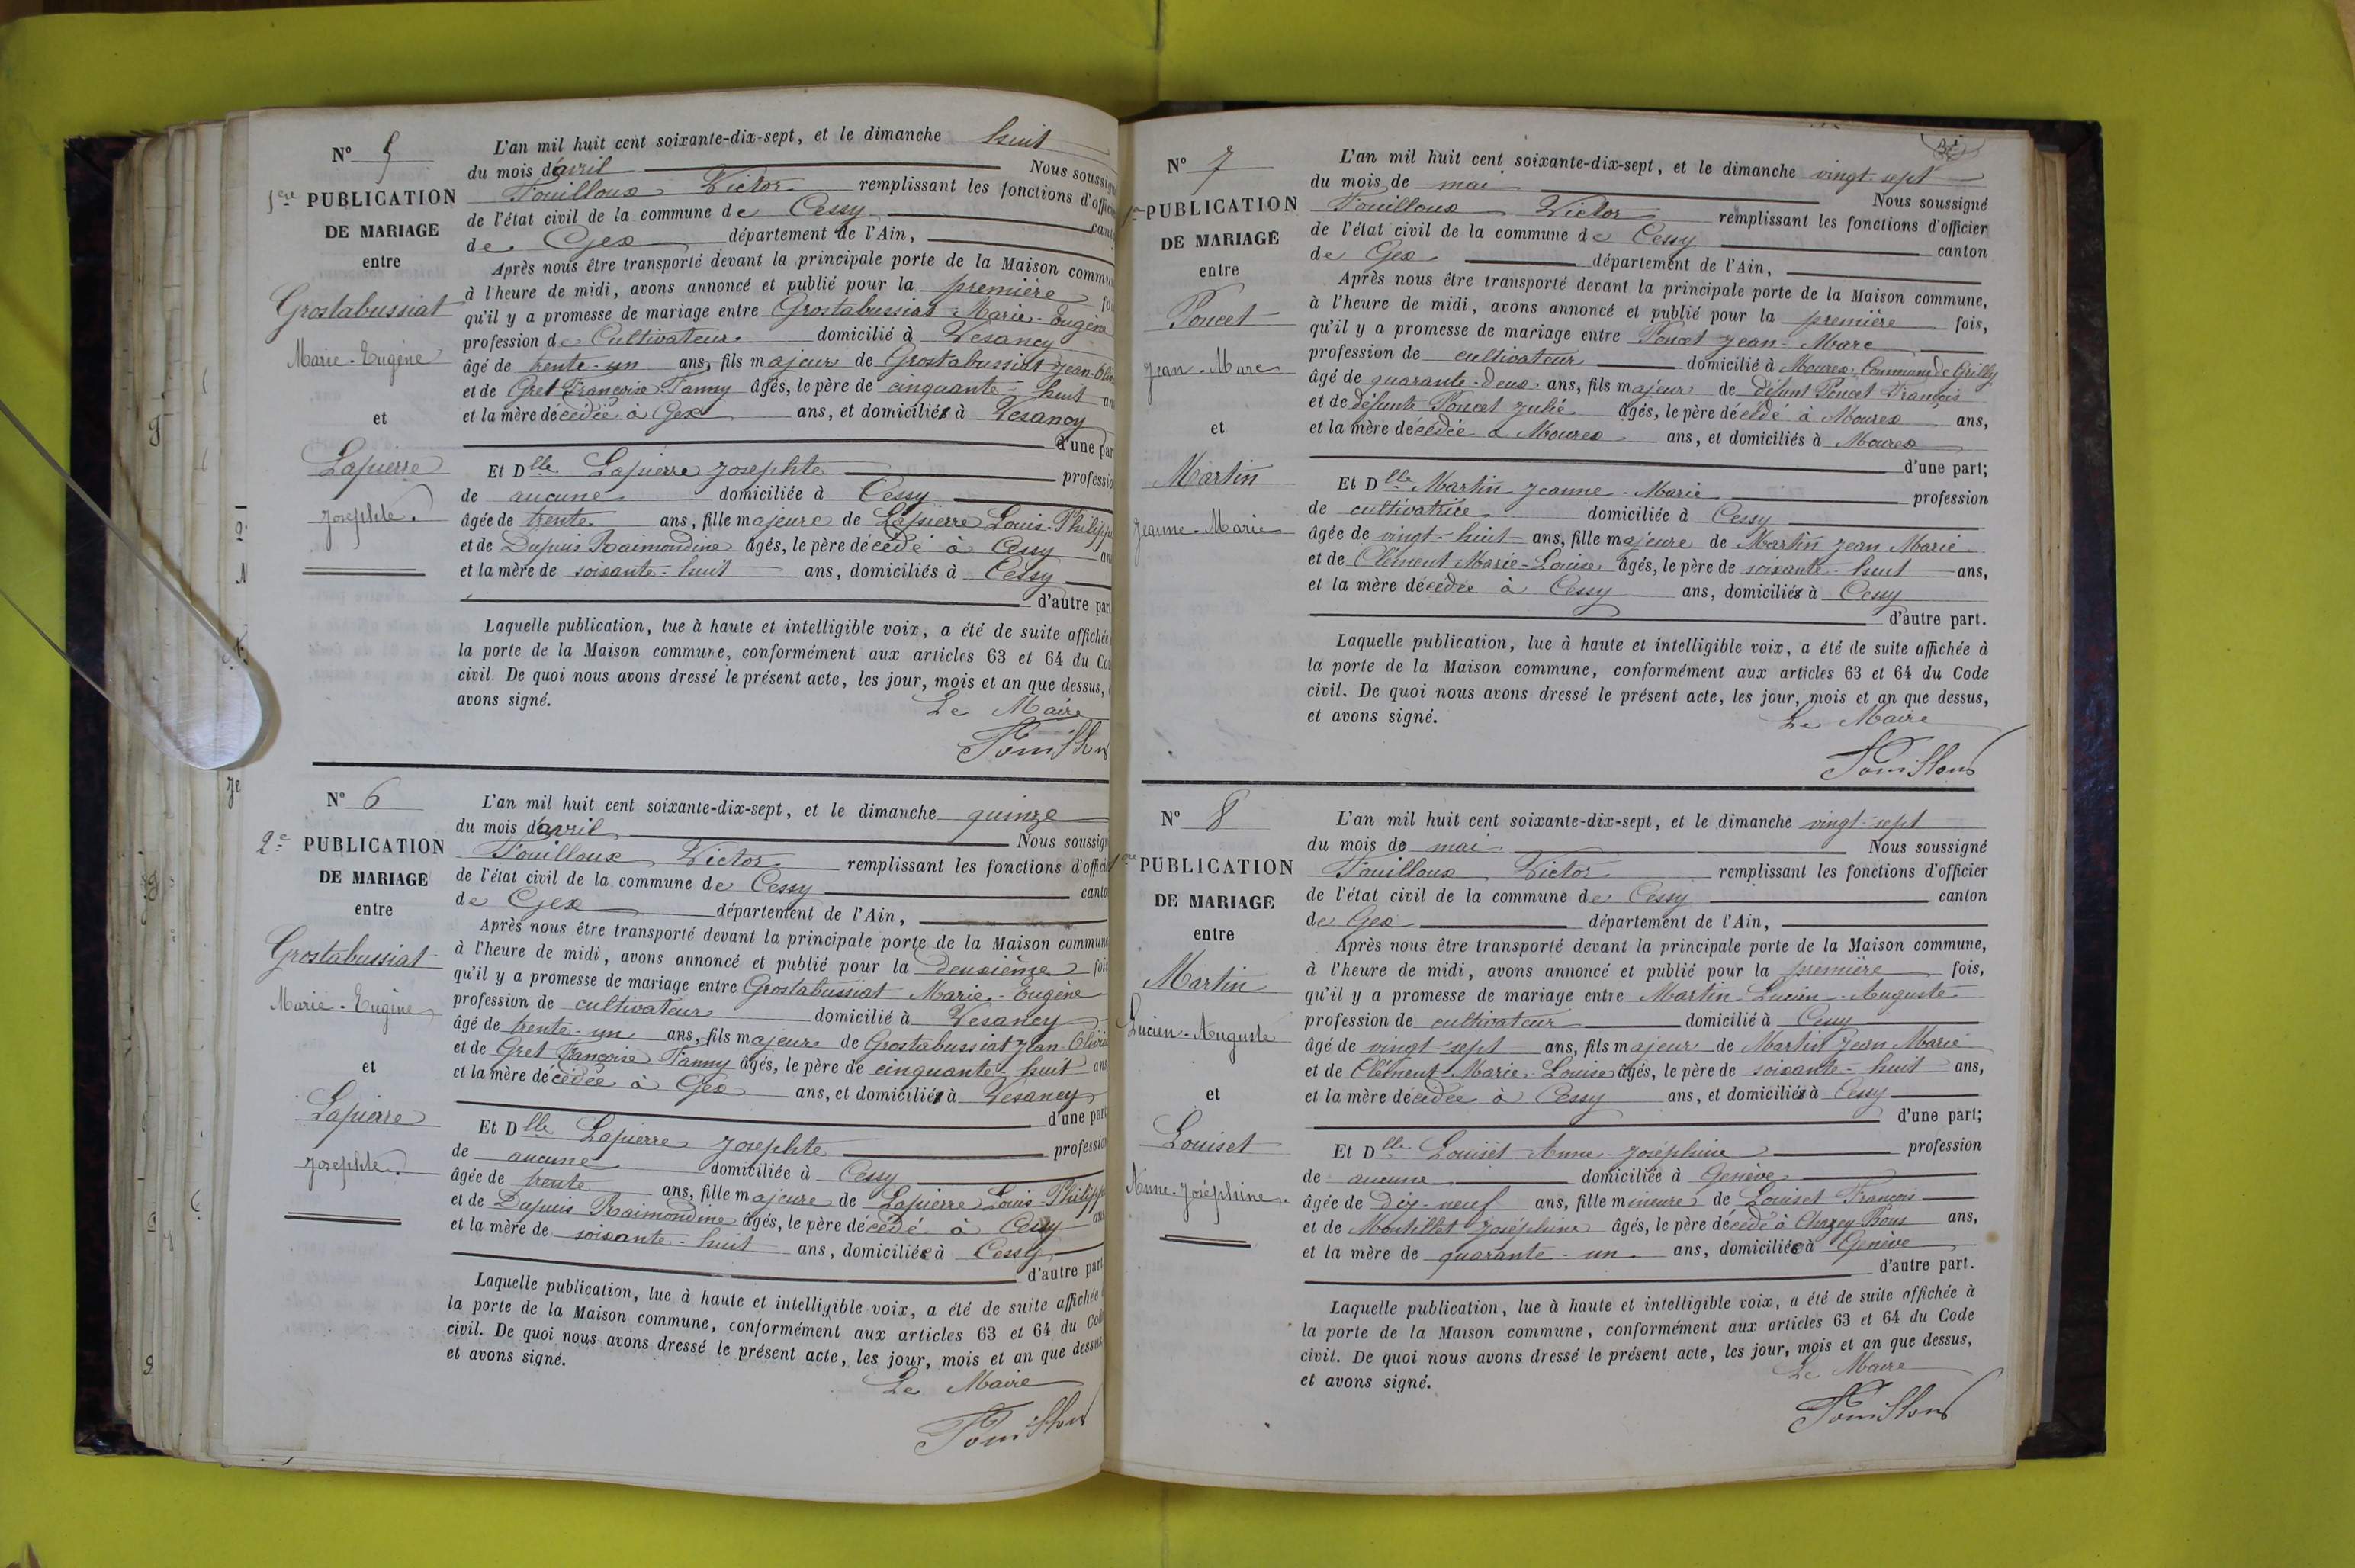 N° 5
1ère PUBLICATION
DE MARIAGE
entre
Grostabussiat
Marie-Eugène
et
Lapierre
Josephte.
L'an mil huit cent soixante-dix-sept, et le dimanche huit
du mois d'avril Nous soussigné
Fouilloux Victor remplissant les fonctions d'officier
de l'état civil de la commune de Cessy canton
de Gex département de l'Ain,
Après nous être transporté devant la principale porte de la Maison commune
à l'heure de midi, avons annoncé et publié pour la première fois
qu'il y a promesse de mariage entre Grostabussiat Marie-Eugène
profession de Cultivateur domicilié à Vesancy
âgé de trente-un ans, fils majeur de Grostabussiat Jean-Olivier
et de Gret Françoise Fanny âgés, le père de cinquante-huit ans
et la mère décédée à Gex ans, et domiciliés à Vesancy
d'une part
Et Dlle Lapierre Josephte profession
de aucune domiciliée à Cessy
âgée de trente ans, fille majeure de Lapierre Louis-Philippe
et de Dupuis Raimondine âgés, le père décédé à Cessy ans
et la mère de soixante-huit ans, domiciliés à Cessy
d'autre part
Laquelle publication, lue à haute et intelligible voix, a été de suite affichée
la porte de la Maison commune, conformément aux articles 63 et 64 du Code
civil. De quoi nous avons dressé le présent acte, les jour, mois et an que dessus,
avons signé.
Le Maire
Fouilloux
N° 6
2e PUBLICATION
DE MARIAGE
entre
Grostabussiat
Marie-Eugène
et
Lapierre
Josephte.
L'an mil huit cent soixante-dix-sept, et le dimanche quinze
du mois d'avril Nous soussigné
Fouilloux Victor remplissant les fonctions d'officier
de l'état civil de la commune de Cessy canton
de Gex département de l'Ain,
Après nous être transporté devant la principale porte de la Maison commune
à l'heure de midi, avons annoncé et publié pour la deuxième fois
qu'il y a promesse de mariage entre Grostabussiat Marie-Eugène
profession de cultivateur domicilié à Vesancy
âgé de trente-un ans, fils majeur de Grostabussiat Jean-Olivier
et de Gret Françoise Fanny âgés, le père de cinquante-huit ans
et la mère décédée à Gex ans, et domiciliés à Vesancy
d'une part
Et Dlle Lapierre Josephte profession
de aucune domiciliée à Cessy
âgée de trente ans, fille majeure de Lapierre Louis Philippe
et de Dupuis Raimondine âgés, le père décédé à Cessy ans
et la mère de soixante-huit ans, domiciliée à Cessy
d'autre part
Laquelle publication, lue à haute et intelligible voix, a été de suite affichée
la porte de la Maison commune, conformément aux articles 63 et 64 du Code
civil. De quoi nous avons dressé le présent acte, les jour, mois et an que dessus,
et avons signé.
Le Maire
Fouilloux
N° 7
1re PUBLICATION
DE MARIAGE
entre
Poncet
Jean-Marc
et
Martin
Jeanne-Marie
L'an mil huit cent soixante-dix-sept, et le dimanche vingt-sept
du mois de mai Nous soussigné
Fouilloux Victor remplissant les fonctions d'officier
de l'état civil de la commune de Cessy canton
de Gex département de l'Ain,
Après nous être transporté devant la principale porte de la Maison commune,
à l'heure de midi, avons annoncé et publié pour la première fois,
qu'il y a promesse de mariage entre Poncet Jean-Marc
profession de cultivateur domicilié à Mourex, Commune de Grilly
âgé de quarante-deux ans, fils majeur de défunt Poncet François
et de défunte Poncet Julie âgés, le père décédé à Mourex ans,
et la mère décédée à Mourex ans, et domiciliés à Mourex
d'une part;
Et Dlle Martin Jeanne-Marie profession
de cultivatrice domiciliée à Cessy
âgée de vingt-huit ans, fille majeure de Martin Jean Marie
et de Clément Marie-Louise âgés, le père de soixante-huit ans,
et la mère décédée à Cessy ans, domiciliés à Cessy
d'autre part.
Laquelle publication, lue à haute et intelligible voix, a été de suite affichée à
la porte de la Maison commune, conformément aux articles 63 et 64 du Code
civil. De quoi nous avons dressé le présent acte, les jour, mois et an que dessus,
et avons signé.
Le Maire
Fouilloux
N° 8
1ère PUBLICATION
DE MARIAGE
entre
Martin
Lucien-Auguste
et
Louiset
Anne-Joséphine.
L'an mil huit cent soixante-dix-sept, et le dimanche vingt-sept
du mois de mai Nous soussigné
Fouilloux Victor remplissant les fonctions d'officier
de l'état civil de la commune de Cessy canton
de Gex département de l'Ain,
Après nous être transporté devant la principale porte de la Maison commune,
à l'heure de midi, avons annoncé et publié pour la première fois,
qu'il y a promesse de mariage entre Martin Lucien-Auguste
profession de cultivateur domicilié à Cessy
âgé de vingt-sept ans, fils majeur de Martin Jean Marie
et de Clément Marie-Louise âgés, le père de soixante-huit ans,
et la mère décédée à Cessy ans, et domiciliés à Cessy
d'une part;
Et Dlle Louiset Anne-Joséphine profession
de aucune domiciliée à Genève
âgée de dix-neuf ans, fille mineure de Louiset François
et de Mortillet Joséphine âgés, le père décédé à Chazey Bons ans,
et la mère de quarante-un ans, domiciliée à Genève
d'autre part.
Laquelle publication, lue à haute et intelligible voix, a été de suite affichée à
la porte de la Maison commune, conformément aux articles 63 et 64 du Code
civil. De quoi nous avons dressé le présent acte, les jour, mois et an que dessus,
et avons signé.
Le Maire
Fouilloux